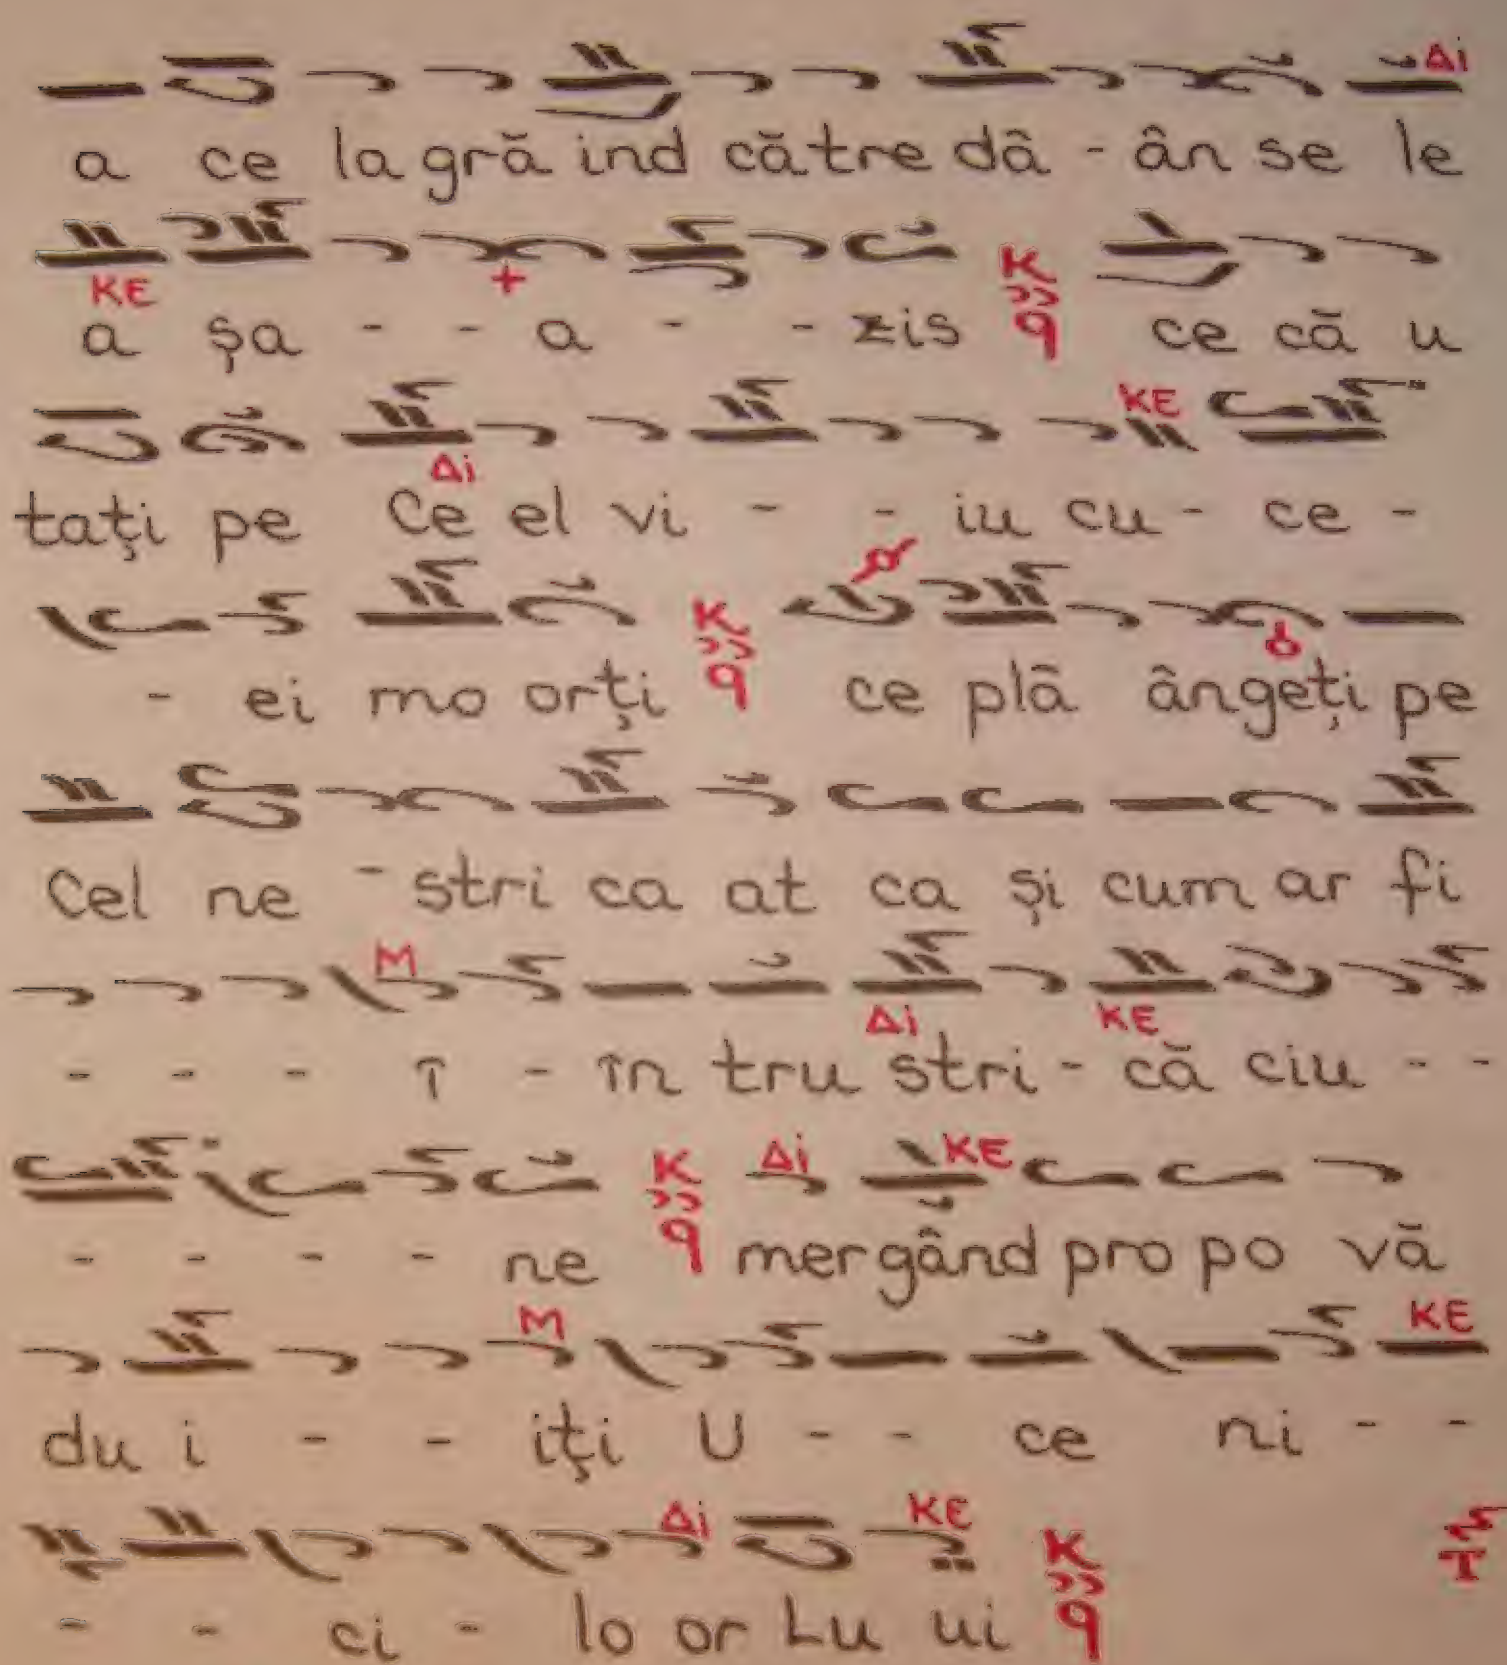 Δi
a ce la gră ind către dâ - ân se le
KE +
a șa - - a - - zis K q ce că u
KE
Δi
tați pe Ce el vi - - iu cu - ce -
- ei mo orți K q ce plâ ângeți pe
Cel ne - stri ca at ca și cum ar fi
M
Δi KE
- - - î - în tru stri - că ciu - -
Δi KE
- - - - ne K q mergând pro po vă
M KE
du i - - iți U - - ce ni - -
Δi KE
- - ci - lo or Lu ui K q